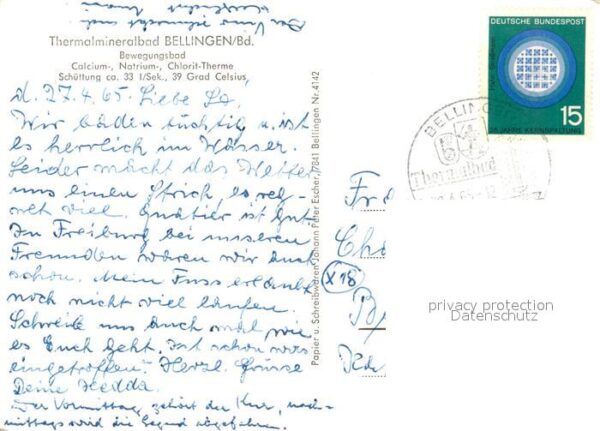 Der Wein schmeckt auch
Thermalmineralbad BELLINGEN/Bd.
Bewegungsbad
Calcium-, Natrium-, Chlorit-Therme
Schüttung ca. 33 l/Sek., 39 Grad Celsius
d. 27.4.65. Liebe
Wir baden tüchtig u. ist
es herrlich im Wasser.
Leider macht das Wetter
uns einen Strich, es reg-
net viel. Quatier ist gut.
In Freiburg bei unseren
Freunden waren wir auch
schon. Mein Fuss erlaubt
noch nicht viel laufen.
Schreib uns auch mal wie
es Euch geht. Ist schon was
eingetroffen? Herzl. Grüsse
Deine Hedda.
Der Vormittag gehört der Kur, nach-
mittags wird die Gegend abgefahren.
Papier u. Schreibwaren Johann Peter Escher, 7841 Bellingen Nr. 4142
DEUTSCHE BUNDESPOST
15
25 JAHRE KERNSPALTUNG
BELLINGEN
Thermalbad
X18
privacy protection
Datenschutz